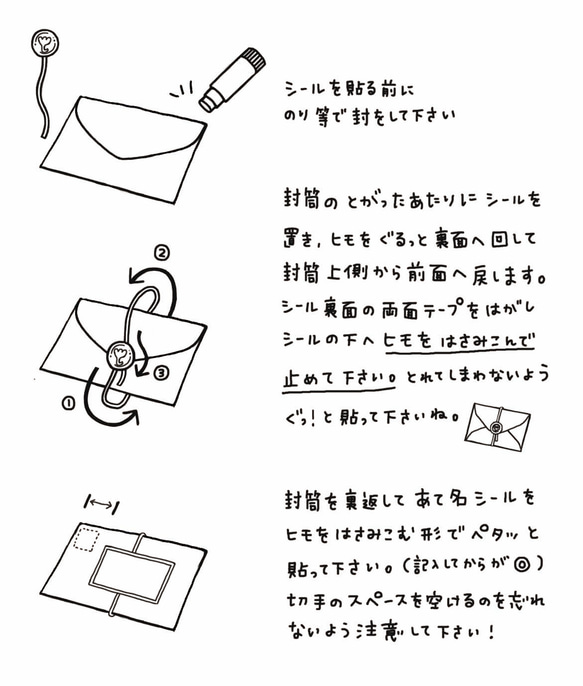 シールを貼る前に
のり等で封をして下さい
封筒のとがったあたりにシールを
置き,ヒモをぐるっと裏面へ回して
封筒上側から前面へ戻します。
シール裏面の両面テープをはがし
シールの下へヒモをはさみこんで
止めて下さい。とれてしまわないよう
ぐっ!と貼って下さいね。
②
③
①
封筒を裏返してあて名シールを
ヒモをはさみこむ形でペタッと
貼って下さい。(記入してからが◎)
切手のスペースを空けるのを忘れ
ないよう注意して下さい!